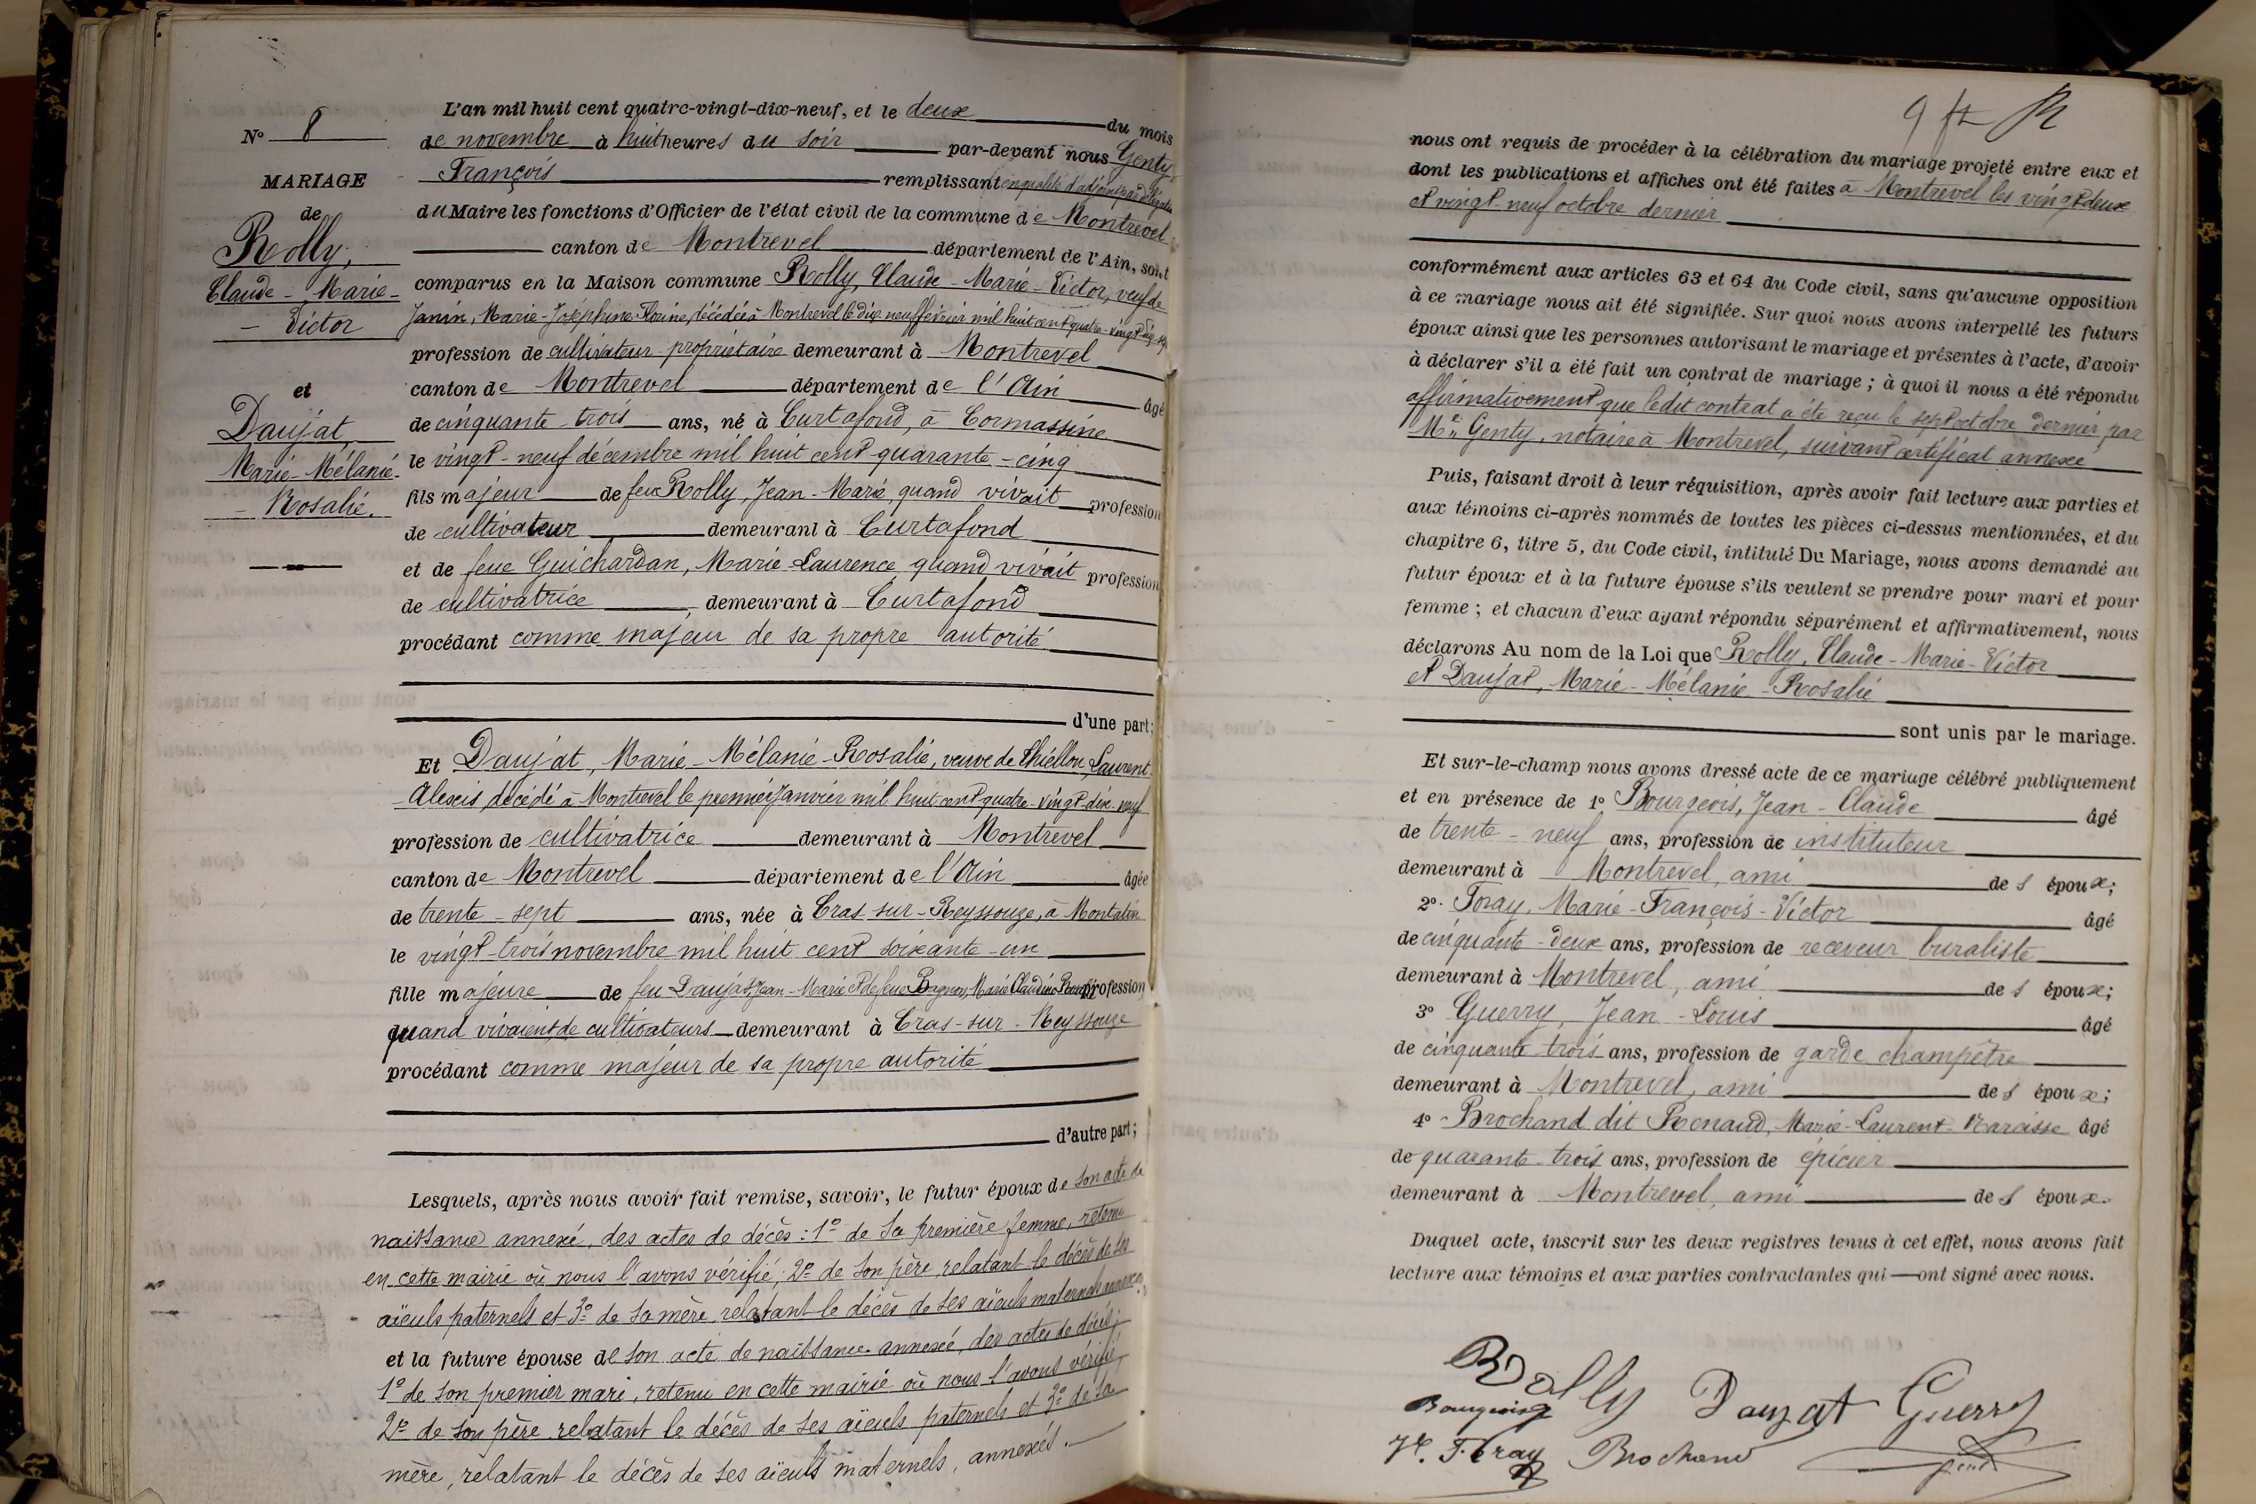 N° 8
MARIAGE
de
Rolly,
Claude - Marie -
- Victor
et
Daujat,
Marie - Mélanie -
- Rosalie.
L'an mil huit cent quatre-vingt-dix-neuf, et le deux du mois
de novembre à huit heures du soir par-devant nous Genty
François remplissant en qualité d'adjoint par
du Maire les fonctions d'Officier de l'état civil de la commune de Montrevel
canton de Montrevel département de l'Ain, sont
comparus en la Maison commune Rolly, Claude - Marie - Victor, veuf de
Janin, Marie - Joséphine - décédée à Montrevel le dix neuf février mil huit cent quatre-vingt
profession de cultivateur propriétaire demeurant à Montrevel
canton de Montrevel département de l'Ain âgé
de cinquante - trois ans, né à Curtafond, à Cormassine
le vingt - neuf décembre mil huit cent quarante - cinq
fils majeur de feu Rolly, Jean - Marie, quand vivait profession
de cultivateur demeurant à Curtafond
et de feue Guichardan, Marie - Laurence quand vivait profession
de cultivatrice demeurant à Curtafond
procédant comme majeur de sa propre autorité
d'une part;
Et Daujat, Marie - Mélanie - Rosalie, veuve de Thiéllon, Laurent
Alexis, décédé à Montrevel le premier janvier mil huit cent quatre - vingt - dix - neuf
profession de cultivatrice demeurant à Montrevel
canton de Montrevel département de l'Ain âgée
de trente - sept ans, née à Cras - sur - Reyssouze, à
le vingt - trois novembre mil huit cent soixante - un
fille majeure de feu Daujat, Jean - Marie et de feue Marie Claudine profession
quand vivaient de cultivateurs demeurant à Cras - sur - Reyssouze
procédant comme majeur de sa propre autorité
d'autre part;
Lesquels, après nous avoir fait remise, savoir, le futur époux de son acte de
naissance annexé, des actes de décès : 1° de sa première femme, retenu
en cette mairie où nous l'avons vérifié; 2° de son père, relatant le décès de ses
aïeuls paternels et 3° de sa mère, relatant le décès de ses aïeuls maternels annexés;
et la future épouse de son acte de naissance annexé, des actes de décès;
1° de son premier mari, retenu en cette mairie où nous l'avons vérifié,
2° de son père relatant le décès de ses aïeuls paternels et 3° de sa
mère, relatant le décès de ses aïeuls maternels, annexés.
9
nous ont requis de procéder à la célébration du mariage projeté entre eux et
dont les publications et affiches ont été faites à Montrevel les vingt-deux
et vingt - neuf octobre dernier
conformément aux articles 63 et 64 du Code civil, sans qu'aucune opposition
à ce mariage nous ait été signifiée. Sur quoi nous avons interpellé les futurs
époux ainsi que les personnes autorisant le mariage et présentes à l'acte, d'avoir
à déclarer s'il a été fait un contrat de mariage; à quoi il nous a été répondu
affirmativement que ledit contrat a été reçu le sept octobre dernier par
Me Genty, notaire à Montrevel, suivant certificat annexé
Puis, faisant droit à leur réquisition, après avoir fait lecture aux parties et
aux témoins ci-après nommés de toutes les pièces ci-dessus mentionnées, et du
chapitre 6, titre 5, du Code civil, intitulé Du Mariage, nous avons demandé au
futur époux et à la future épouse s'ils veulent se prendre pour mari et pour
femme; et chacun d'eux ayant répondu séparément et affirmativement, nous
déclarons Au nom de la Loi que Rolly, Claude - Marie - Victor
et Daujat, Marie - Mélanie - Rosalie
sont unis par le mariage.
Et sur-le-champ nous avons dressé acte de ce mariage célébré publiquement
et en présence de 1° Bourgeois, Jean - Claude âgé
de trente - neuf ans, profession de instituteur
demeurant à Montrevel, ami des époux;
2° Foray, Marie - François - Victor âgé
de cinquante - deux ans, profession de receveur buraliste
demeurant à Montrevel, ami des époux;
3° Guerry, Jean - Louis âgé
de cinquante trois ans, profession de garde champêtre
demeurant à Montrevel, ami des époux;
4° Brochand dit Renaud, Marie - Laurent - Narcisse âgé
de quarante - trois ans, profession de épicier
demeurant à Montrevel, ami des époux.
Duquel acte, inscrit sur les deux registres tenus à cet effet, nous avons fait
lecture aux témoins et aux parties contractantes qui ont signé avec nous.
Rolly Daujat Guerry
Bourgeois
Vr. Foray Brochand